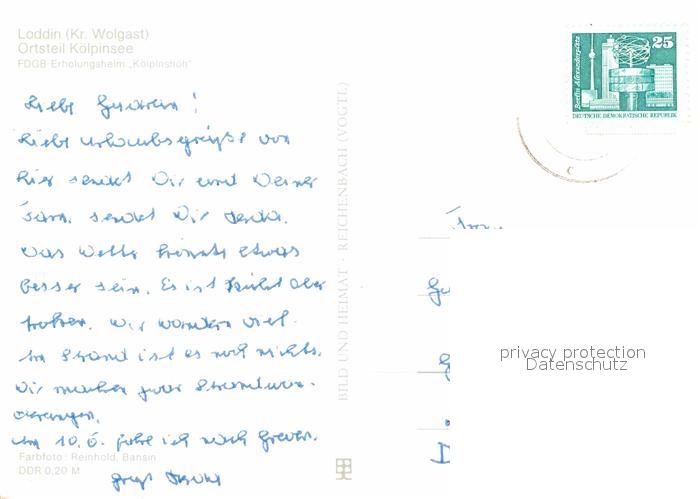 Loddin (Kr. Wolgast)
Ortsteil Kölpinsee
FDGB-Erholungsheim „Kölpinshöh"
Liebe Gudrun!
Liebe Urlaubsgrüße von
hier sendet Dir und Deiner
Fam. sendet Dir
Das Wetter könnte etwas
besser sein. Es ist kühl aber
trocken. Wir wandern viel.
Am Strand ist es noch nichts.
Wir machen zwar Strandwan-
derungen.
Am 10.6. fahre ich nach
Gruß
Farbfoto: Reinhold, Bansin
DDR 0,20 M
BILD UND HEIMAT · REICHENBACH (VOGTL)
Berlin, Alexanderplatz
25
DEUTSCHE DEMOKRATISCHE REPUBLIK
privacy protection
Datenschutz